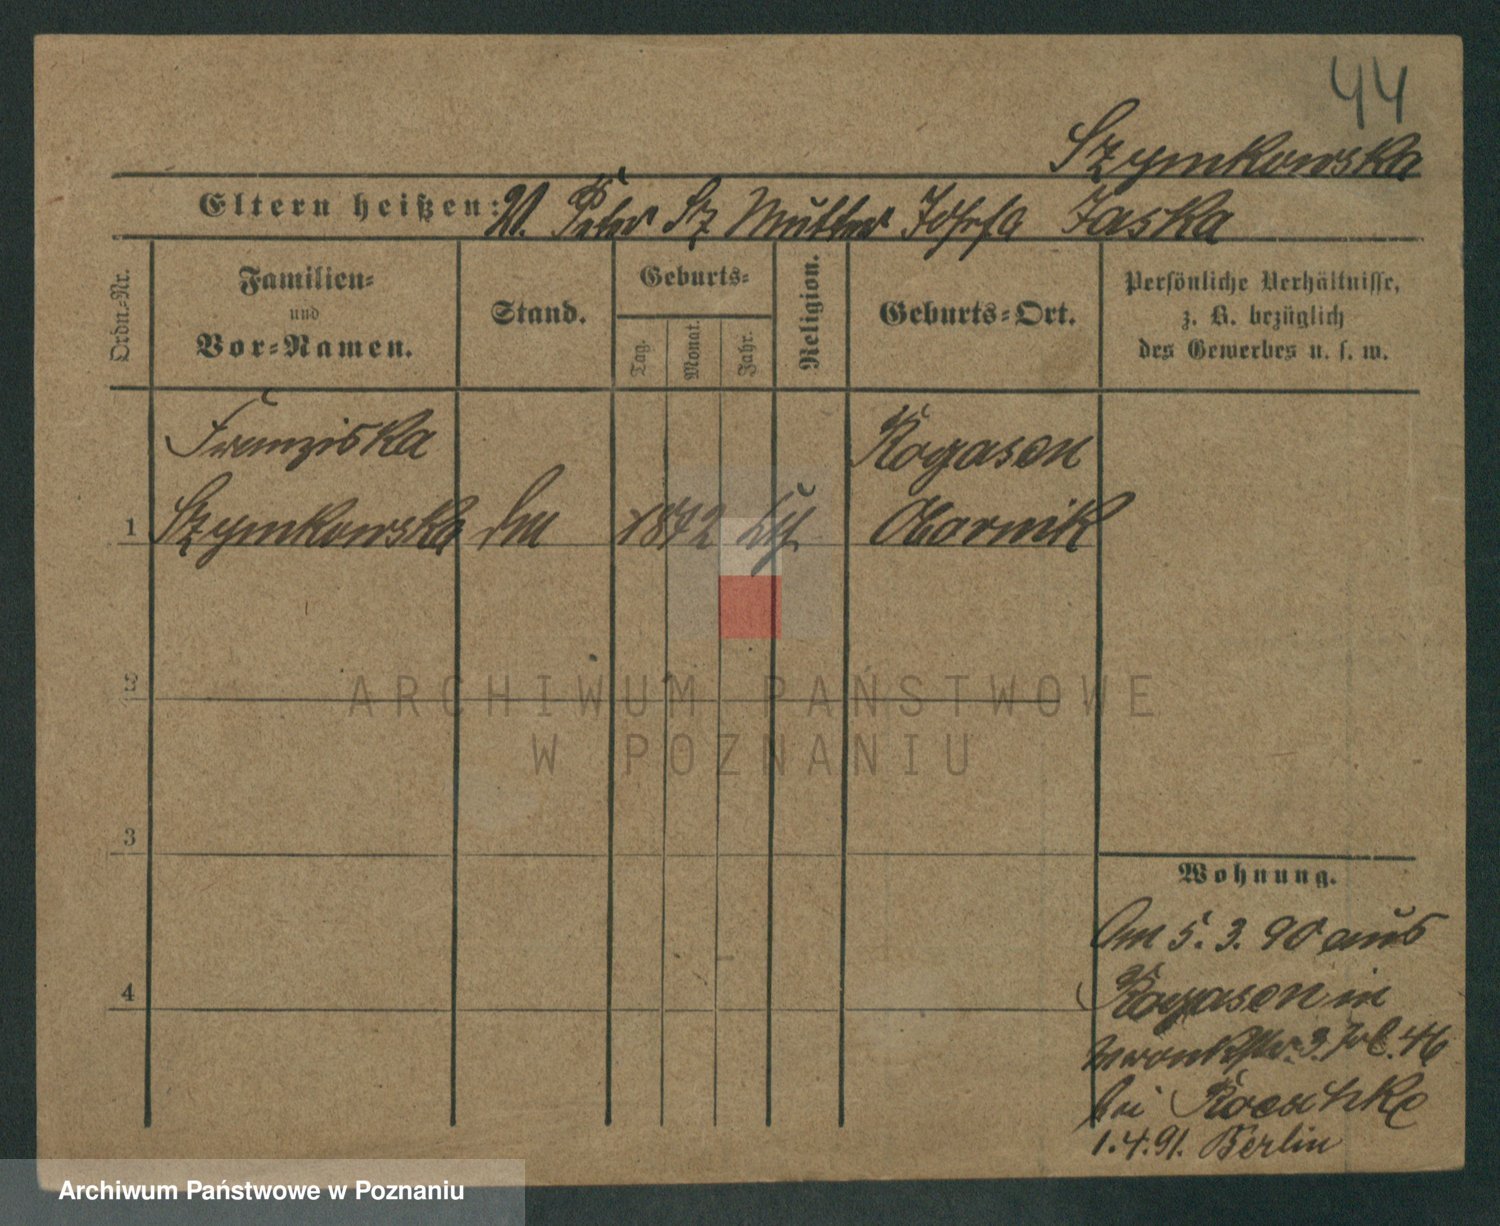 44
Szymkowska
Eltern heißen: V. Peter Sz Mutter Josefa Jaska
Ordn.-Nr.
Familien-
und
Vor-Namen.
Stand.
Geburts-
Tag.
Monat.
Jahr.
Religion.
Geburts-Ort.
Persönliche Verhältnisse,
z. B. bezüglich
des Gewerbes u. s. w.
Franziska
Rogasen
1 Szymkowska 1872 Obornik
2
ARCHIWUM PAŃSTWOWE
W POZNANIU
3
Wohnung.
Am 5.3.90 aus
4
Rogasen in
46
bei Roeschke
1.4.91. Berlin
Archiwum Państwowe w Poznaniu